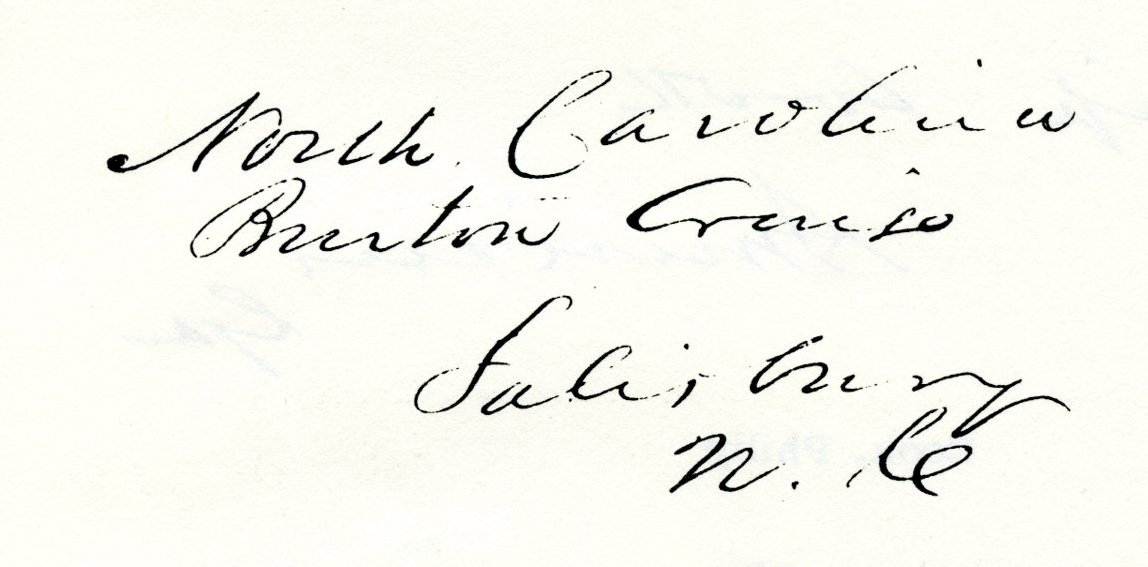 North Carolina
Burton Craige
Salisbury
N. C